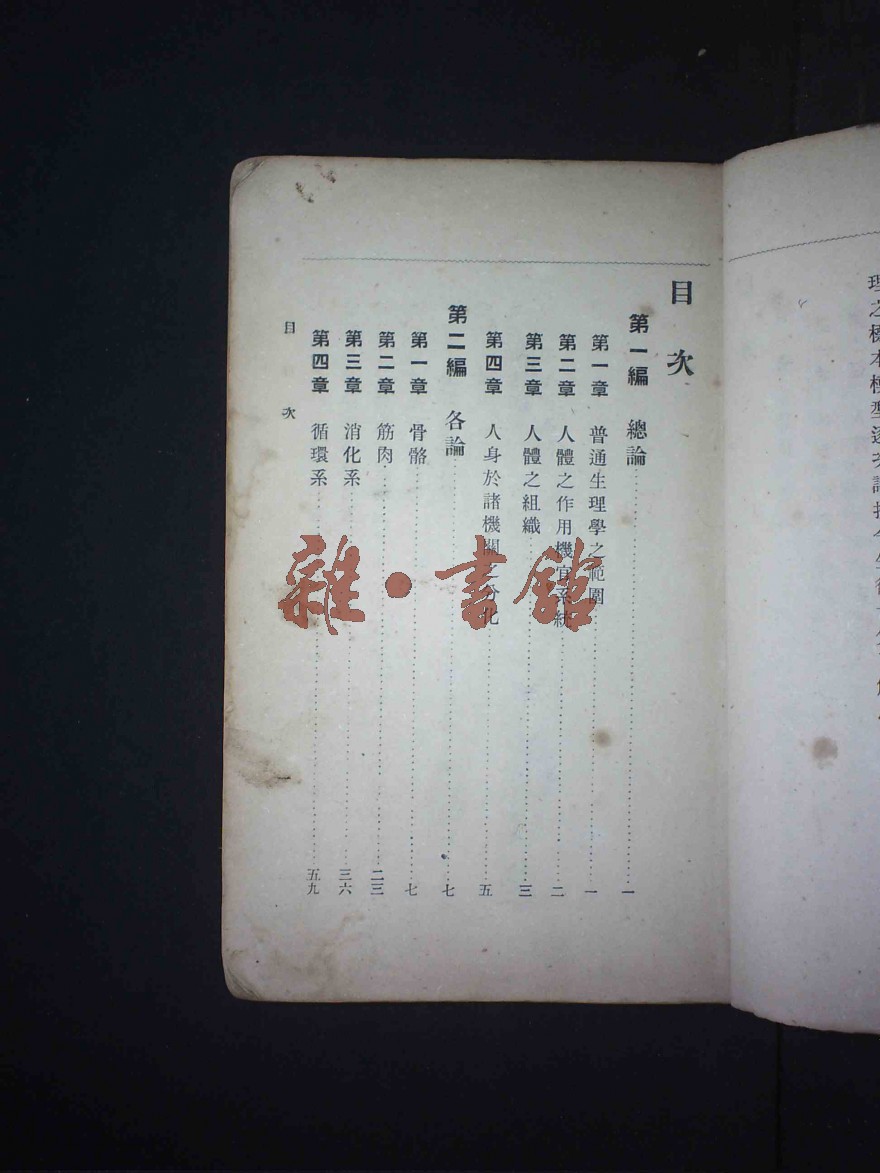 理之標本模型逐次講授
目次
第一編 總論 一
第一章 普通生理學之範圍 一
第二章 人體之作用機官系統 二
第三章 人體之組織 三
第四章 人身於諸機關之分化 五
第二編 各論 七
第一章 骨骼 七
第二章 筋肉 二三
第三章 消化系 三六
第四章 循環系 五九
目次
雜·書館